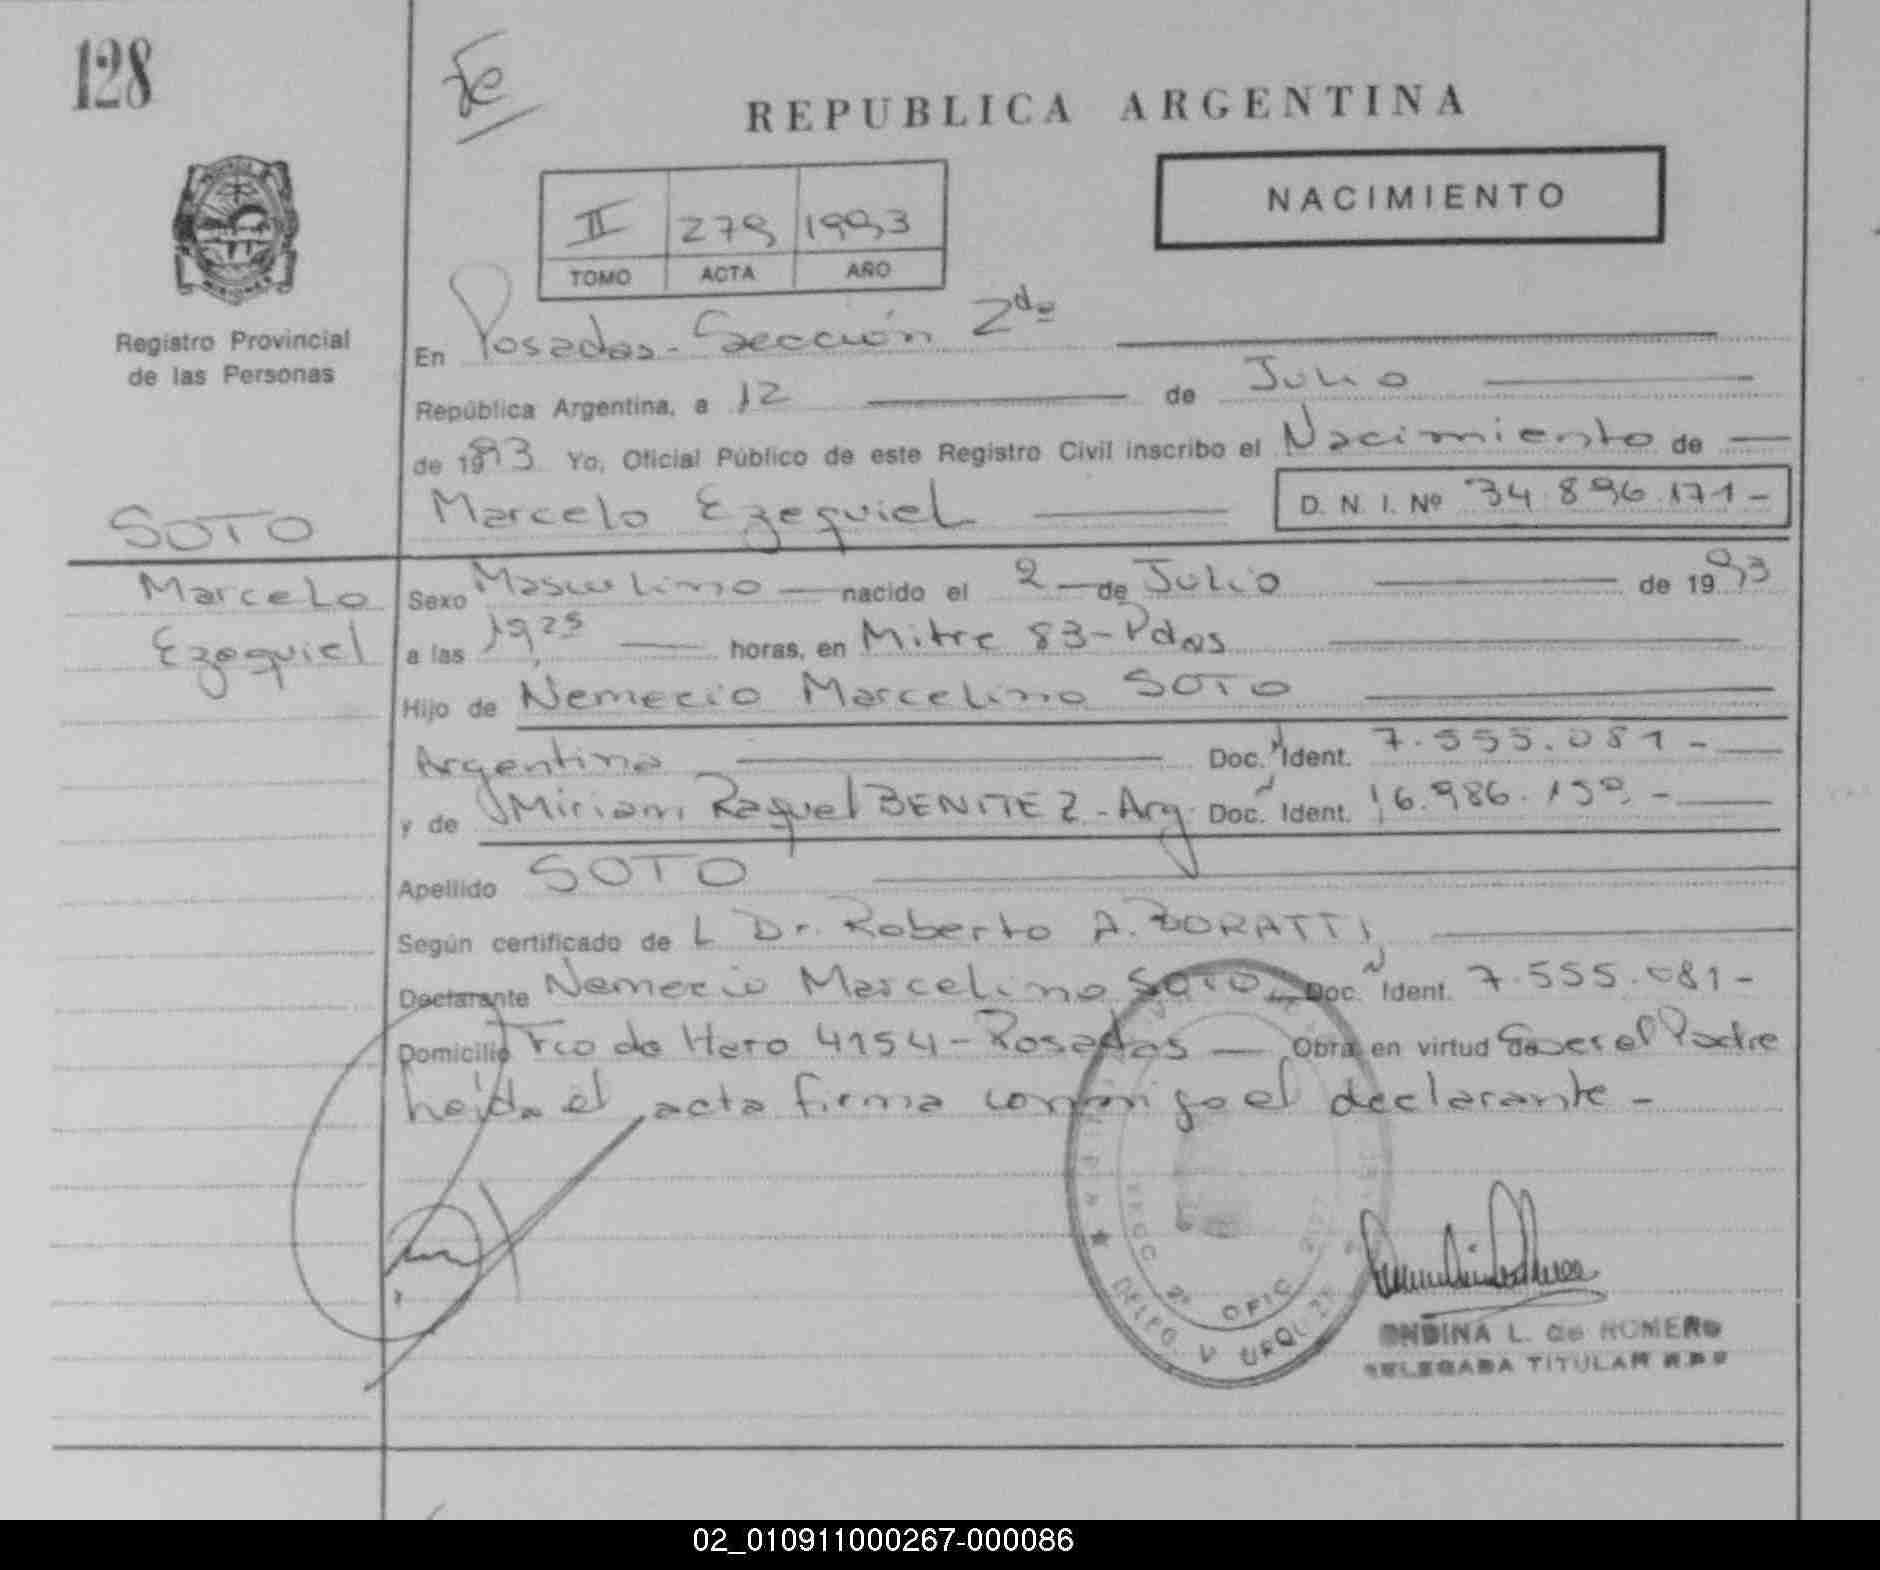 128
REPUBLICA ARGENTINA
NACIMIENTO
II 279 1993
TOMO ACTA AÑO
Registro Provincial
de las Personas
En Posadas - Sección 2da
República Argentina, a 12 de Julio
de 1993 Yo, Oficial Público de este Registro Civil inscribo el Nacimiento de
Marcelo Ezequiel D. N. I. Nº 34.896.171-
SOTO
Marcelo
Ezequiel
Sexo Masculino nacido el 2 de Julio de 1993
a las 19,25 horas, en Mitre 83 - Pdas
Hijo de Nemecio Marcelino SOTO
Argentina Doc. Ident. 7.555.081-
y de Miriam Raquel BENITEZ - Arg. Doc. Ident. 16.986.159.-
Apellido SOTO
Según certificado de L Dr. Roberto A. BORATTI
Declarante Nemecio Marcelino SOTO Doc. Ident. 7.555.081-
Domicilio Fco de Haro 4154 - Posadas - Obra en virtud de ser el Padre
leida el acta firma conmigo el declarante -
OFIC
DELEG. V URQUIZA
ONDINA L. de ROMERO
DELEGADA TITULAR R.P.P
02_010911000267-000086